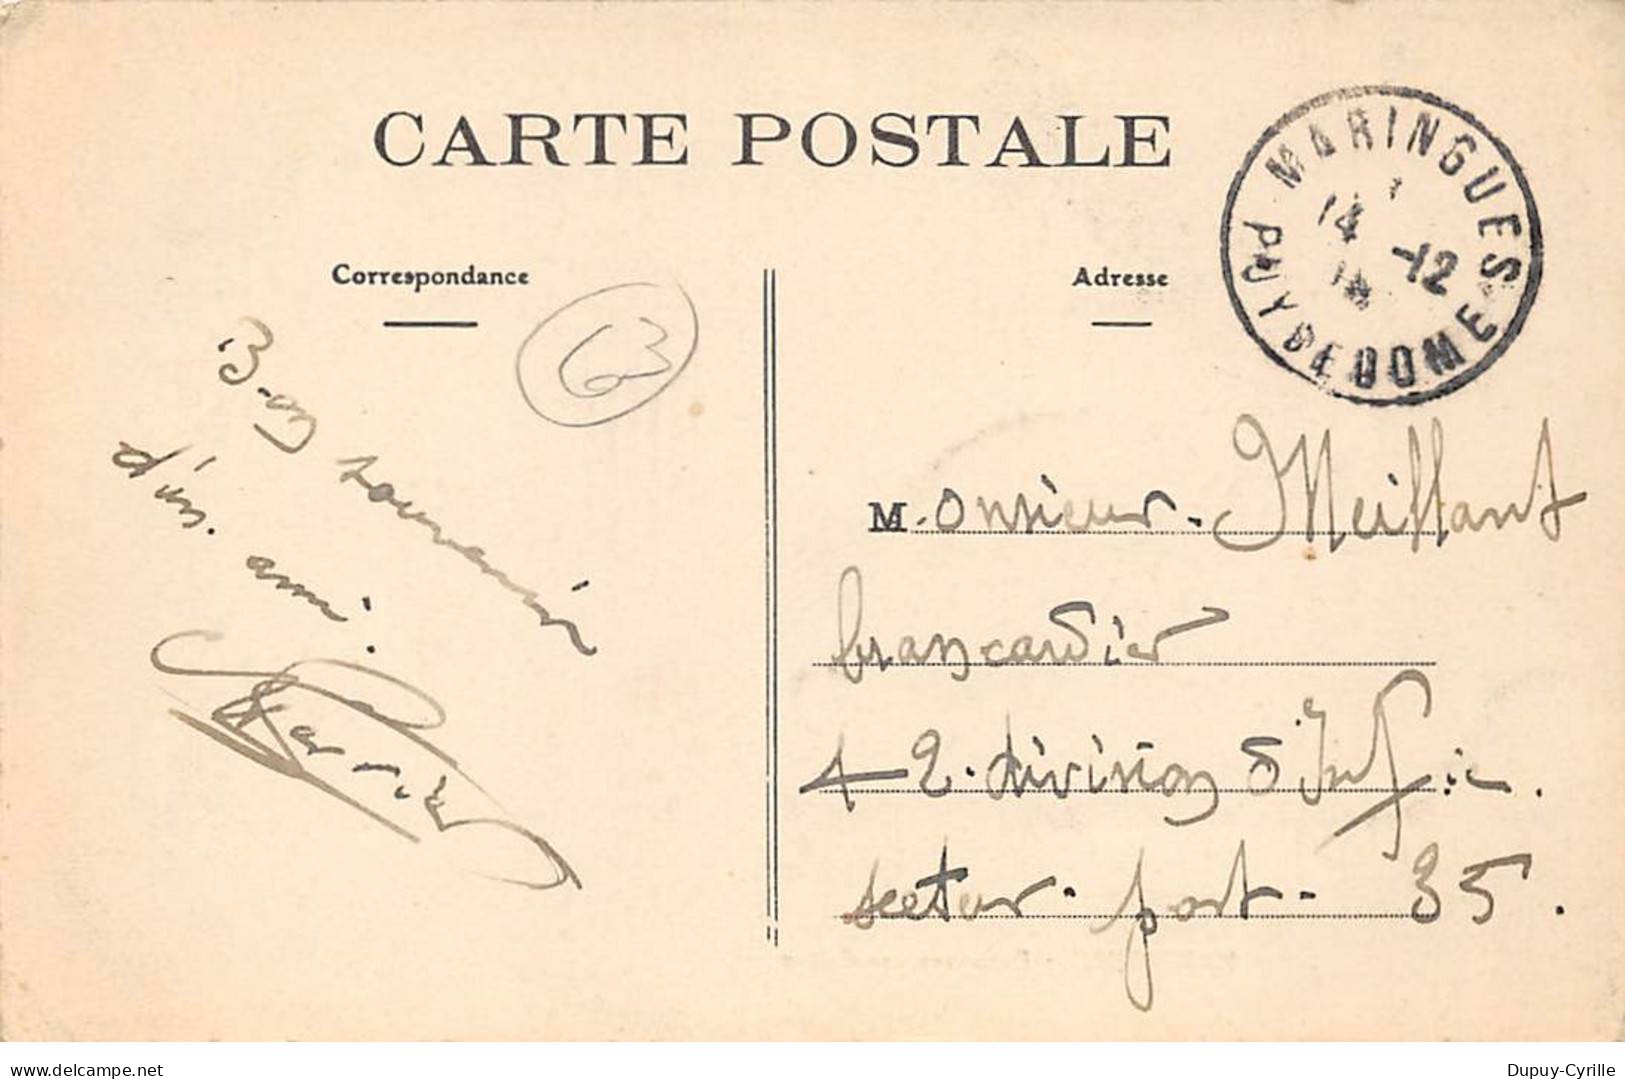 CARTE POSTALE
MARINGUES
14 -12
14
PUY DE DOME
Correspondance
Adresse
63
Bon souvenir
d'un ami.
M.onsieur. Meillant
brancardier
42. division d'Inf.ie.
secteur. post. 35.
delcampe.net
Dupuy-Cyrille